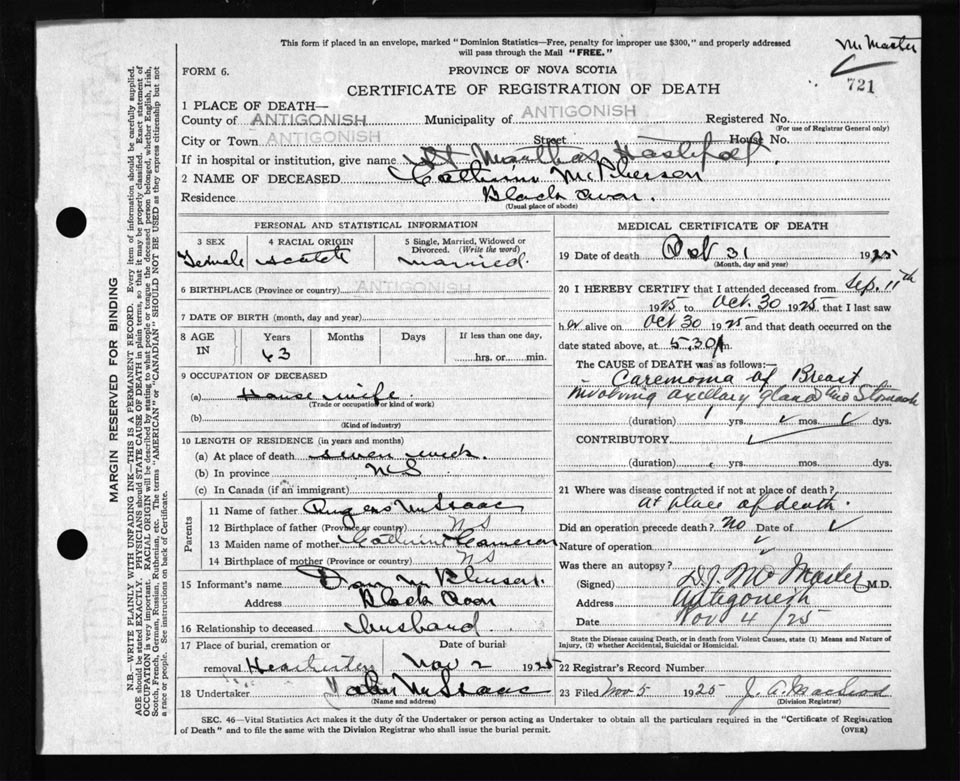 This form if placed in an envelope, marked "Dominion Statistics—Free, penalty for improper use $300," and properly addressed
will pass through the Mail "FREE."
McMaster
FORM 6.
PROVINCE OF NOVA SCOTIA
721
CERTIFICATE OF REGISTRATION OF DEATH
1 PLACE OF DEATH—
County of ANTIGONISH Municipality of ANTIGONISH Registered No.
(For use of Registrar General only)
City or Town ANTIGONISH Street House No.
If in hospital or institution, give name St Marthas Hospital
2 NAME OF DECEASED Catherine McPherson
Residence Black Avon.
(Usual place of abode)
PERSONAL AND STATISTICAL INFORMATION
3 SEX Female
4 RACIAL ORIGIN Scotch
5 Single, Married, Widowed or Divorced. (Write the word) married.
6 BIRTHPLACE (Province or country) ANTIGONISH
7 DATE OF BIRTH (month, day and year)
8 AGE IN Years 63 Months Days If less than one day, hrs. or min.
9 OCCUPATION OF DECEASED
(a) House wife
(Trade or occupation or kind of work)
(b)
(Kind of industry)
10 LENGTH OF RESIDENCE (in years and months)
(a) At place of death seven week
(b) In province NS
(c) In Canada (if an immigrant)
Parents
11 Name of father Angus McIsaac
12 Birthplace of father (Province or country) NS
13 Maiden name of mother Catherine Cameron
14 Birthplace of mother (Province or country) NS
15 Informant's name Dan McPherson.
Address Black Avon
16 Relationship to deceased husband
17 Place of burial, cremation or Date of burial
removal Nov 2 1925
18 Undertaker John McIsaac
(Name and address)
MEDICAL CERTIFICATE OF DEATH
19 Date of death Oct 31 1925
(Month, day and year)
20 I HEREBY CERTIFY that I attended deceased from Sep. 11th
1925 to Oct. 30 1925 that I last saw
her alive on Oct 30 1925 and that death occurred on
date stated above, at 5.30 A m.
The CAUSE OF DEATH was as follows:—
Carcinoma of Breast
involving axillary glands and Stomach
(duration) yrs. mos. dys.
CONTRIBUTORY
(duration) yrs. mos. dys.
21 Where was disease contracted if not at place of death?
at place of death.
Did an operation precede death? no Date of
Nature of operation
Was there an autopsy?
(Signed) McMaster M.D.
Address Antigonish
Date Nov 4 /25
State the Disease causing Death, or in death from Violent Causes, state (1) Means and Nature of
Injury, (2) whether Accidental, Suicidal or Homicidal.
22 Registrar's Record Number
23 Filed Nov 5 1925 J. A. MacLeod
(Division Registrar)
SEC. 46—Vital Statistics Act makes it the duty of the Undertaker or person acting as Undertaker to obtain all the particulars required in the "Certificate of Registration
of Death" and to file the same with the Division Registrar who shall issue the burial permit.
(OVER)
MARGIN RESERVED FOR BINDING
N.B.—WRITE PLAINLY WITH UNFADING INK—THIS IS A PERMANENT RECORD. Every item of information should be carefully supplied.
AGE should be stated EXACTLY. PHYSICIANS should STATE CAUSE OF DEATH in plain terms, so that it may be properly classified. Exact statement of
OCCUPATION is very important. RACIAL ORIGIN will be described by stating to what people or tongue the deceased person belonged, whether English, Irish,
Scotch, French, German, Russian, Ruthenian, etc. The terms "AMERICAN" or "CANADIAN" SHOULD NOT BE USED as they express citizenship but not
a race or people. See instructions on back of Certificate.